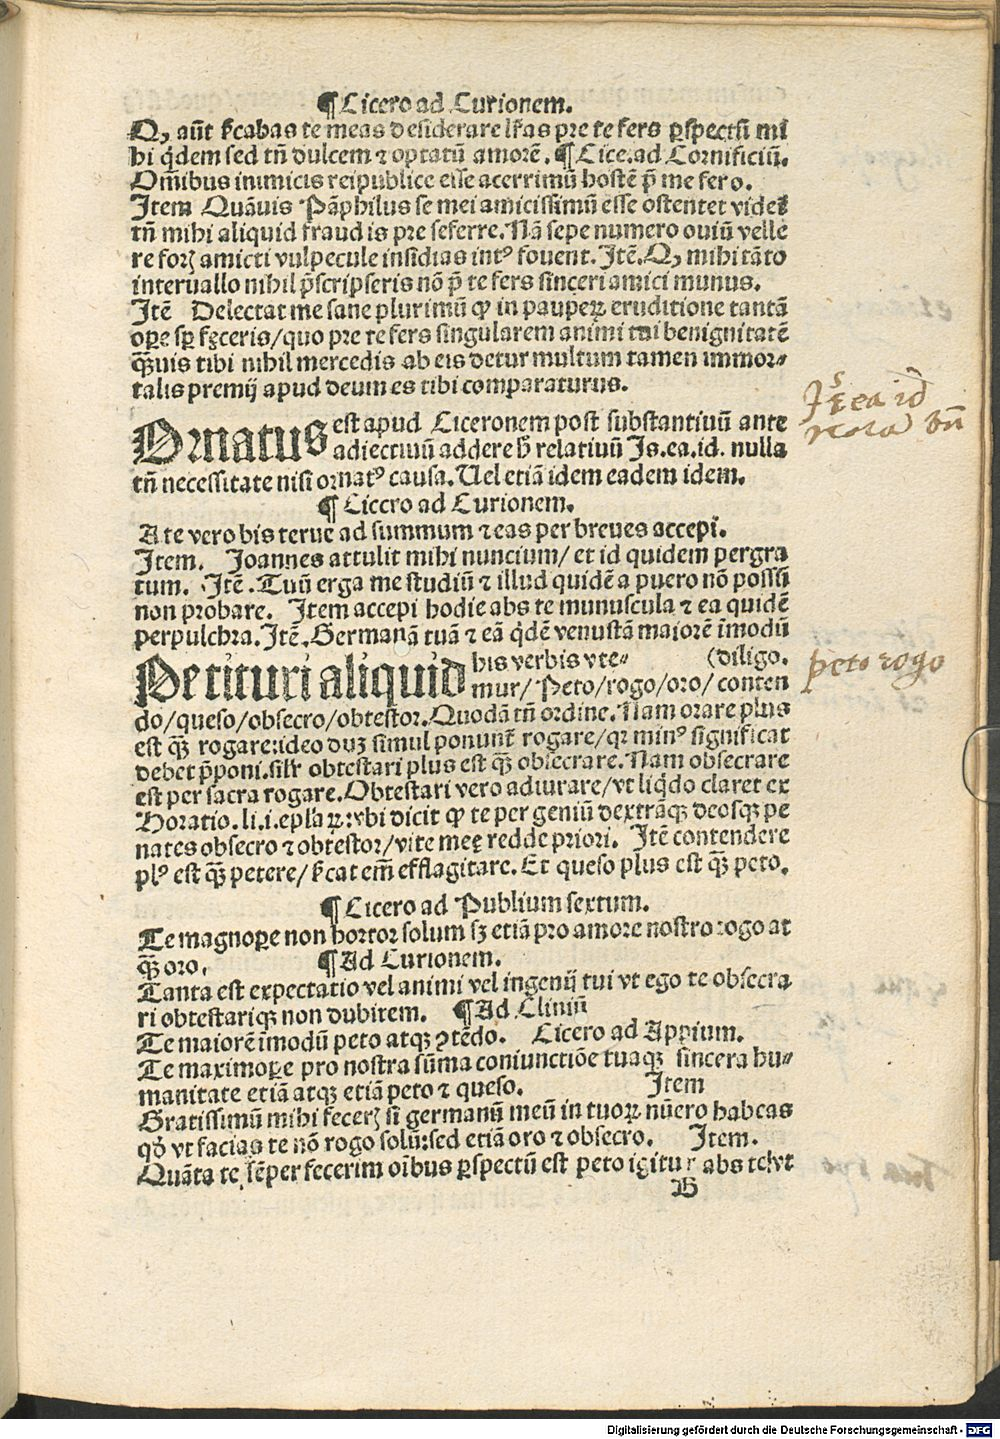 ¶ Cicero ad Curionem.
Qꝫ aūt scᵬas te meas desiderare lr̄as pre te fers ꝑspectū mi
hi q̇dem sed tn̄ dulcem ⁊ optatū amorē. ¶ Cice. ad Cornificiū.
Om̄ibus inimicis reipublice eisse acerrimū hostē p̄ me fero.
Item Quāuis Pāphilus se mei amicissimū esse ostentet videt̄
tn̄ mihi aliquid fraudis pre seferre. Nā sepe numero ouiū velle
re forꝫ amicti vulpecule insidias intꝰ fouent. Itē. Qꝫ mihi tāto
interuallo nihil p̄scripseris nō p̄ te fers sinceri amici munus.
Itē Delectat me sane plurimū ꝙ in pauperꝝ eruditione tantā
oꝑe sꝑ fęceris/quo pre te fers singularem animi tui benignitatē
qꝫ̄uis tibi nihil mercedis ab eis detur multum tamen immor⸗
talis premij apud deum es tibi comparaturus.
Ornatus est apud Ciceronem post substantiuū ante
adiectiuū addere h̄ relatiuū Is.ea.id. nulla
tn̄ necessitate nisi ornatꝰ causa. Uel etiā idem eadem idem.
¶ Cicero ad Curionem.
A te vero bis terue ad summum ⁊ eas per breues accepi.
Item. Joannes attulit mihi nuncium/ et id quidem pergra
tum. Itē. Tuū erga me studiū ⁊ illud quidē a puero nō possū
non probare. Item accepi hodie abs te munuscula ⁊ ea quidē
perpulchra. Itē. Germanā tuā ⁊ eā q̇dē venustā maiorē īmodū
Petituri aliquid his verbis vte⸗ (diligo.
mur/ Peto/rogo/oro/ conten
do/queso/obsecro/obtestor. Quodā tn̄ ordine. Nam orare plus
est qꝫ̄ rogare: ideo duꝫ simul ponunt̄ rogare/qꝛ minꝰ significat
debet p̄poni. silr̄ obtestari plus est qꝫ̄ obsecrare. Nam obsecrare
est per sacra rogare. Obtestari vero adiurare/vt liq̇do claret ex
Horatio. li.i.epl̄aꝝ: vbi dicit ꝙ te per geniū dextrāqꝫ deosqꝫ pe
nates obsecro ⁊ obtestor/vite meę redde priori. Itē contendere
plꝰ est qꝫ̄ petere/ sc̄at em̄ efflagitare. Et queso plus est qꝫ̄ peto.
¶ Cicero ad Publium sextum.
Te magnoꝑe non hortor solum sꝫ etiā pro amore nostro rogo at
qꝫ̄ oro. ¶ Ad Curionem.
Tanta est expectatio vel animi vel ingenij tui vt ego te obsecra
ri obtestariqꝫ non dubitem. ¶ Ad Cliniū
Te maiorē īmodū peto atqꝫ ꝯtēdo. Cicero ad Appium.
Te maximoꝑe pro nostra sūma coniunctiōe tuaqꝫ sincera hu⸗
manitate etiā atqꝫ etiā peto ⁊ queso. Item
Gratissimū mihi fecerꝫ si germanū meū in tuoꝝ nūero habeas
qd̄ vt facias te nō rogo solū: sed etiā oro ⁊ obsecro. Item.
Quāta te sēper fecerim oībus ꝑspectū est peto igitur abs te/vt
B
ea id
peto rogo
Digitalisierung gefördert durch die Deutsche Forschungsgemeinschaft - DFG